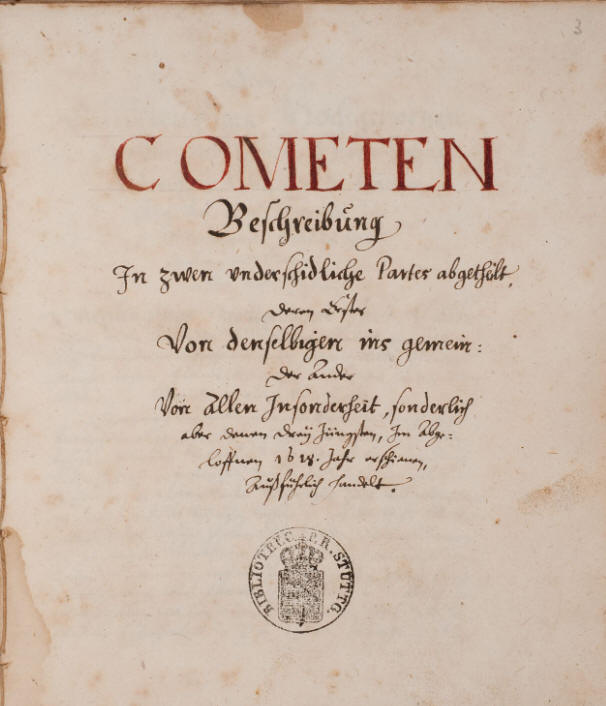 3
COMETEN
Beschreibung
In zwen underschidliche Partes abgethölt,
deren Erster
Von denselbigen ins gemein:
der Ander
Von Allen Insonderheit, sonderlich
aber denen dreÿ Jüngsten, Im Abge:
loffnen 1618. Jahr erschienen,
Außführlich handelt.
BIBLIOTHEC. P.R. STUTTG.